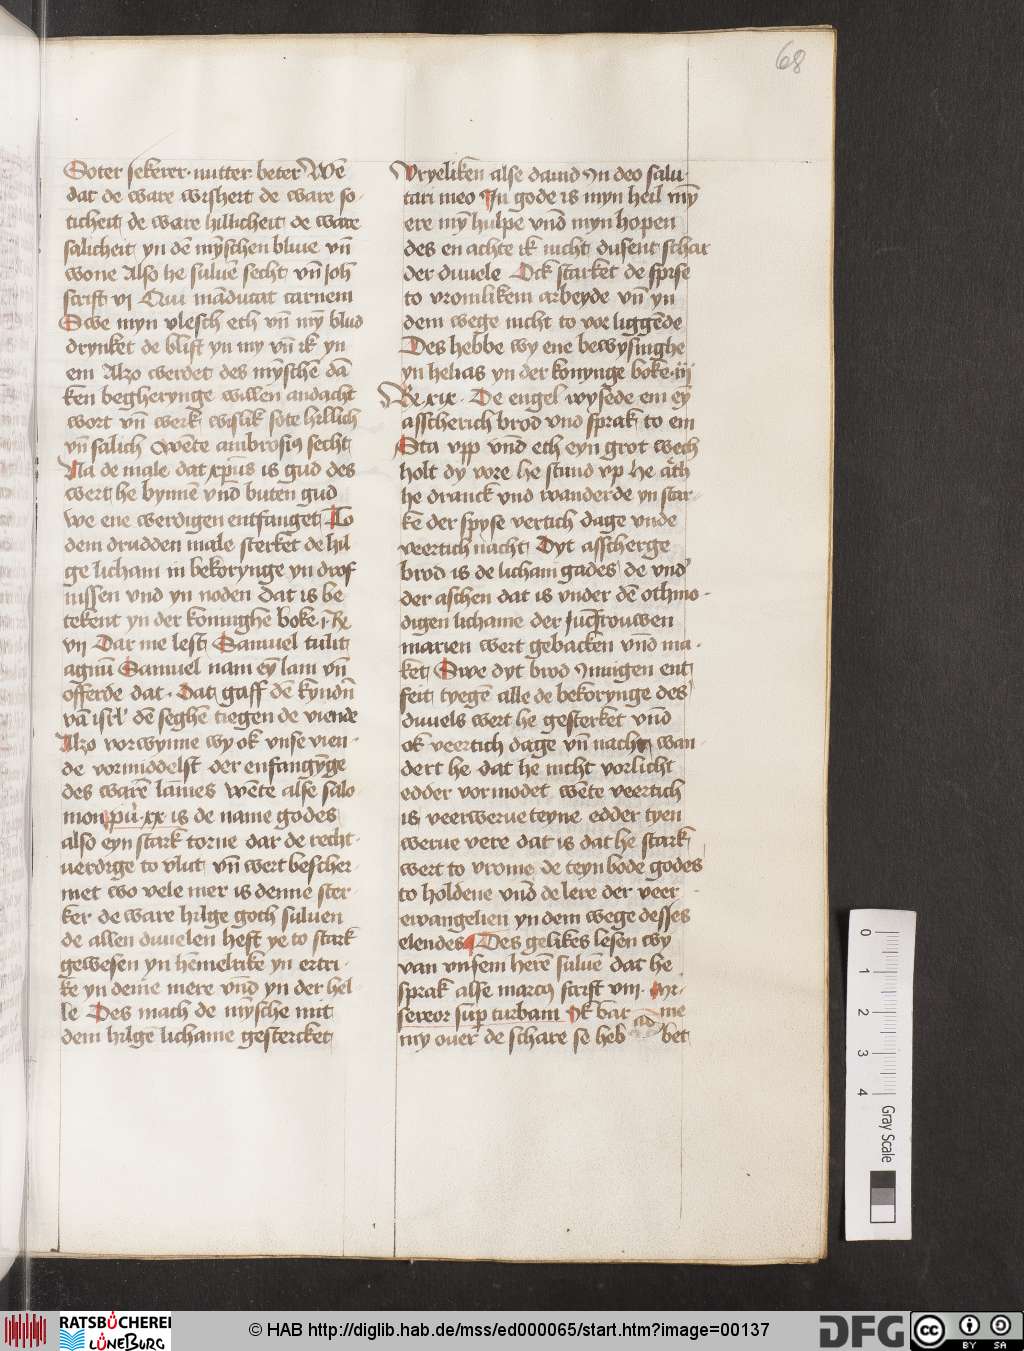 68
Soter sekerer nutter beter Wēte
dat de ware wisheit de ware so
ticheit de ware hillicheit de ware
salicheit yn dē mȳschen bliue vn̄
wone Also he suluē secht vn̄ joh̄
scrift vj Qui māducat carnem
Swe myn vlesch eth vn̄ mȳ blud
drynket de blift yn my vn̄ ik yn
em Alzo werdet des mȳschē dā
ken begherynge willen andacht
wort vn̄ werk wislik sote hillich
vn̄ salich Wēte ambrosiꝯ secht
Na de male dat xp̄us is gud des
wert he bynnē vn̄d buten gud
we ene werdigen entfanget To
dem drudden male sterket de hil
ge licham in bekorynge yn drof
nissen vnd yn noden dat is be
tekent yn der koninghe boke j Re
vij Dar me lest Samuel tulit
agnū Samuel nam eȳ lam vn̄
offerde dat Dat gaff dē kyndn̄
vā isrl' dē seghē tiegen de viende
Alzo vorwynne wy ok vnse vien
de vormiddelst der enfangȳge
des warē lāmes Wēte alse salo
mon pū xx is de name godes
also eyn stark torne dar de recht
uerdige to vlut vn̄ wert bescher
met wo vele mer is denne ster
ker de ware hilge goth suluen
de allen duuelen heft ye to stark
gewesen yn hēmelrike yn ertri
ke yn deme mere vn̄d yn der hel
le Des mach de mȳsche mit
dem hilgē lichame gestercket
Vryeliken alse dauid Jn deo salu
tari meo Jn gode is myn heil mȳ
ere mȳ hulpe vn̄d myn hopen
des en achte ik nicht dusent schar
der duuele Ock starket de spise
to vromlikem arbeyde vn̄ yn
dem wege nicht to vor liggēde
Des hebbe wy ene bewysinghe
yn helias yn der konynge boke iij
Re xix De engel wysede em eȳ
asscherich brod vnd sprak to em
Sta vpp vn̄d eth eyn grot wech
holt dy vore he stund vp he āth
he dranck vnd wanderde yn star
kē der spyse vertich dage vnde
veertich nacht Dyt asscherge
brod is de licham gades de vnd'
der aschen dat is vnder dē othmo
digen lichame der jūcfrouwen
marien wert gebacken vn̄d ma
ket Swe dyt brod Jnnigen ent
feit tyegē alle de bekorynge des
duuels wert he gesterket vn̄d
ok veertich dage vn̄ nacht wan
dert he dat he nicht vorlicht
edder vormodet wēte veertich
is veerwerue teyne edder tyen
werue vere dat is dat he stark
wert to vrome de teyn bode godes
to holdene vn̄d de lere der veer
ewangelien yn dem wege desses
elendes Des gelikes lesen wy
van vnsem herē suluē dat he
sprak alse marcꝯ scrift viij Mi
sereor sup̄ turbam Ik bar me
my ouer de schare se heb bet
0
1
2
3
4
Gray Scale
RATSBÜCHEREI
LÜNEBURG
© HAB http://diglib.hab.de/mss/ed000065/start.htm?image=00137
DFG
cc
BY SA